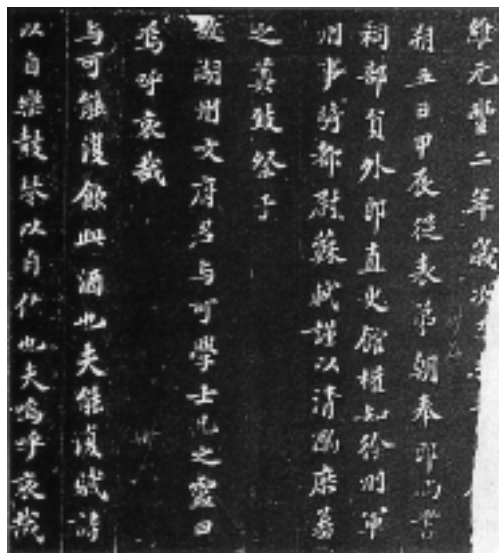 維元豐二年歲次
朔五日甲辰從表弟朝奉郎尚書
祠部員外郎直史館權知徐州軍
州事騎都尉蘇軾謹以清酌庶羞
之奠致祭于
故湖州文府君與可學士兄之靈曰
嗚呼哀哉
与可能復飲此酒也夫能復賦詩
以自樂鼓琴以自侑也夫嗚呼哀哉